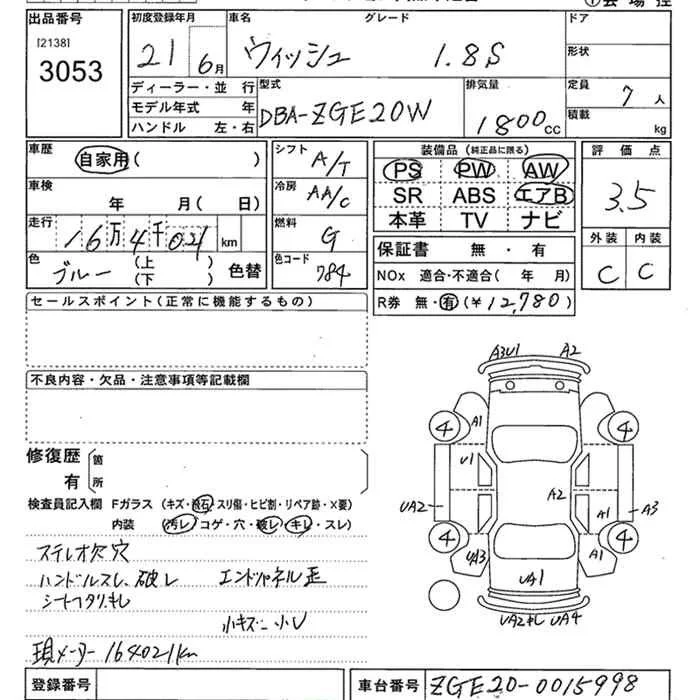 出品番号
[2138]
3053
初度登録年月
21 6月
車名
ウィッシュ
グレード
1.8S
ドア
形状
ディーラー・並 行
モデル年式 年
ハンドル 左・右
型式
DBA-ZGE20W
排気量
1800cc
定員
7人
積載
kg
車歴
自家用( )
シフト
A/T
車検
年 月( 日)
冷房
AA/C
走行
16万4千021km
燃料
G
色
ブルー (上)(下) 色替
色コード
784
装備品(純正品に限る)
PS PW AW
SR ABS エアB
本革 TV ナビ
保証書 無・有
NOx 適合・不適合( 年 月)
R券 無・有(¥12,780)
評価点
3.5
外装 内装
C C
セールスポイント(正常に機能するもの)
不良内容・欠品・注意事項等記載欄
修復歴 箇所
有
検査員記入欄 Fガラス(キズ・飛石・スリ傷・ヒビ割・リペア跡・X要)
内装(汚レ・コゲ・穴・破レ・キレ・スレ)
ステレオ欠穴
ハンドルスレ、破レ エンドパネル歪
シートヘタリ、キレ
小キズ 小U
現メーター164021km
A3U1 A2
4 A1 4
U1
A2
UA2 A1 A3
4 UA3 A1 4
UA1
UA2キレ UA4
登録番号
車台番号 ZGE20-0015998